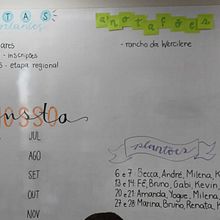 TAS
ares
- inscrições
S - etapa regional
anotações
- rancho da Wercilene
JUL
AGO
SET
OUT
NOV
plantões
6 e 7: Becca, André, Milena, K
13 e 14: Fê, Bruno, Gabi, Kevin,
20 e 21: Amanda, Yoque, Milena,
27 e 28: Marina, Bruno, Renata, K